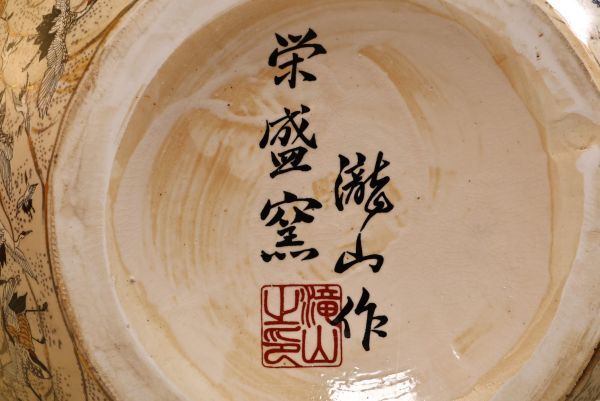 瀧山作
栄盛窯
滝山
之印